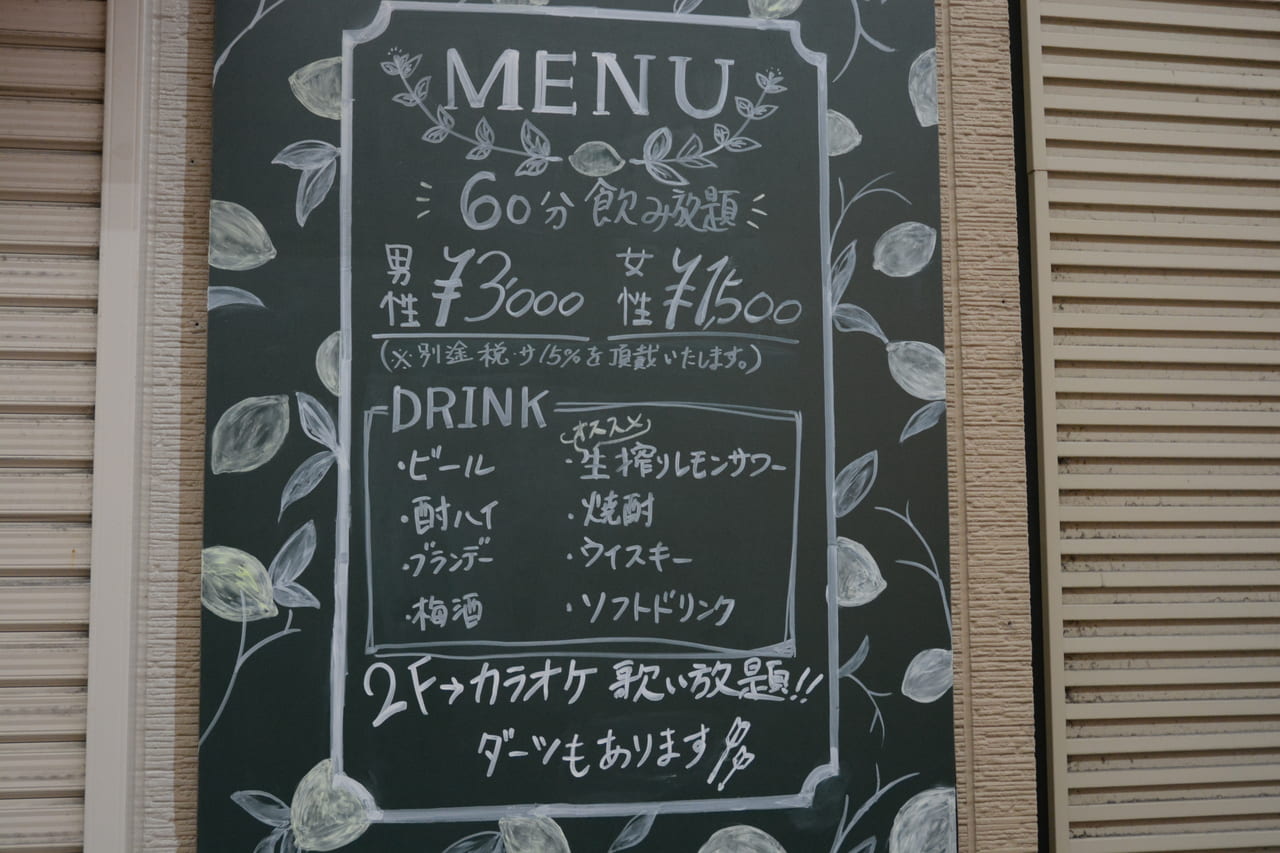 MENU
60分 飲み放題
男性 ¥3,000 女性 ¥1,500
(※別途 税・サ15%を頂戴いたします。)
DRINK
オススメ
・ビール ・生搾りレモンサワー
・酎ハイ ・焼酎
・ブランデー ・ウイスキー
・梅酒 ・ソフトドリンク
2F→カラオケ 歌い放題!!
ダーツもあります